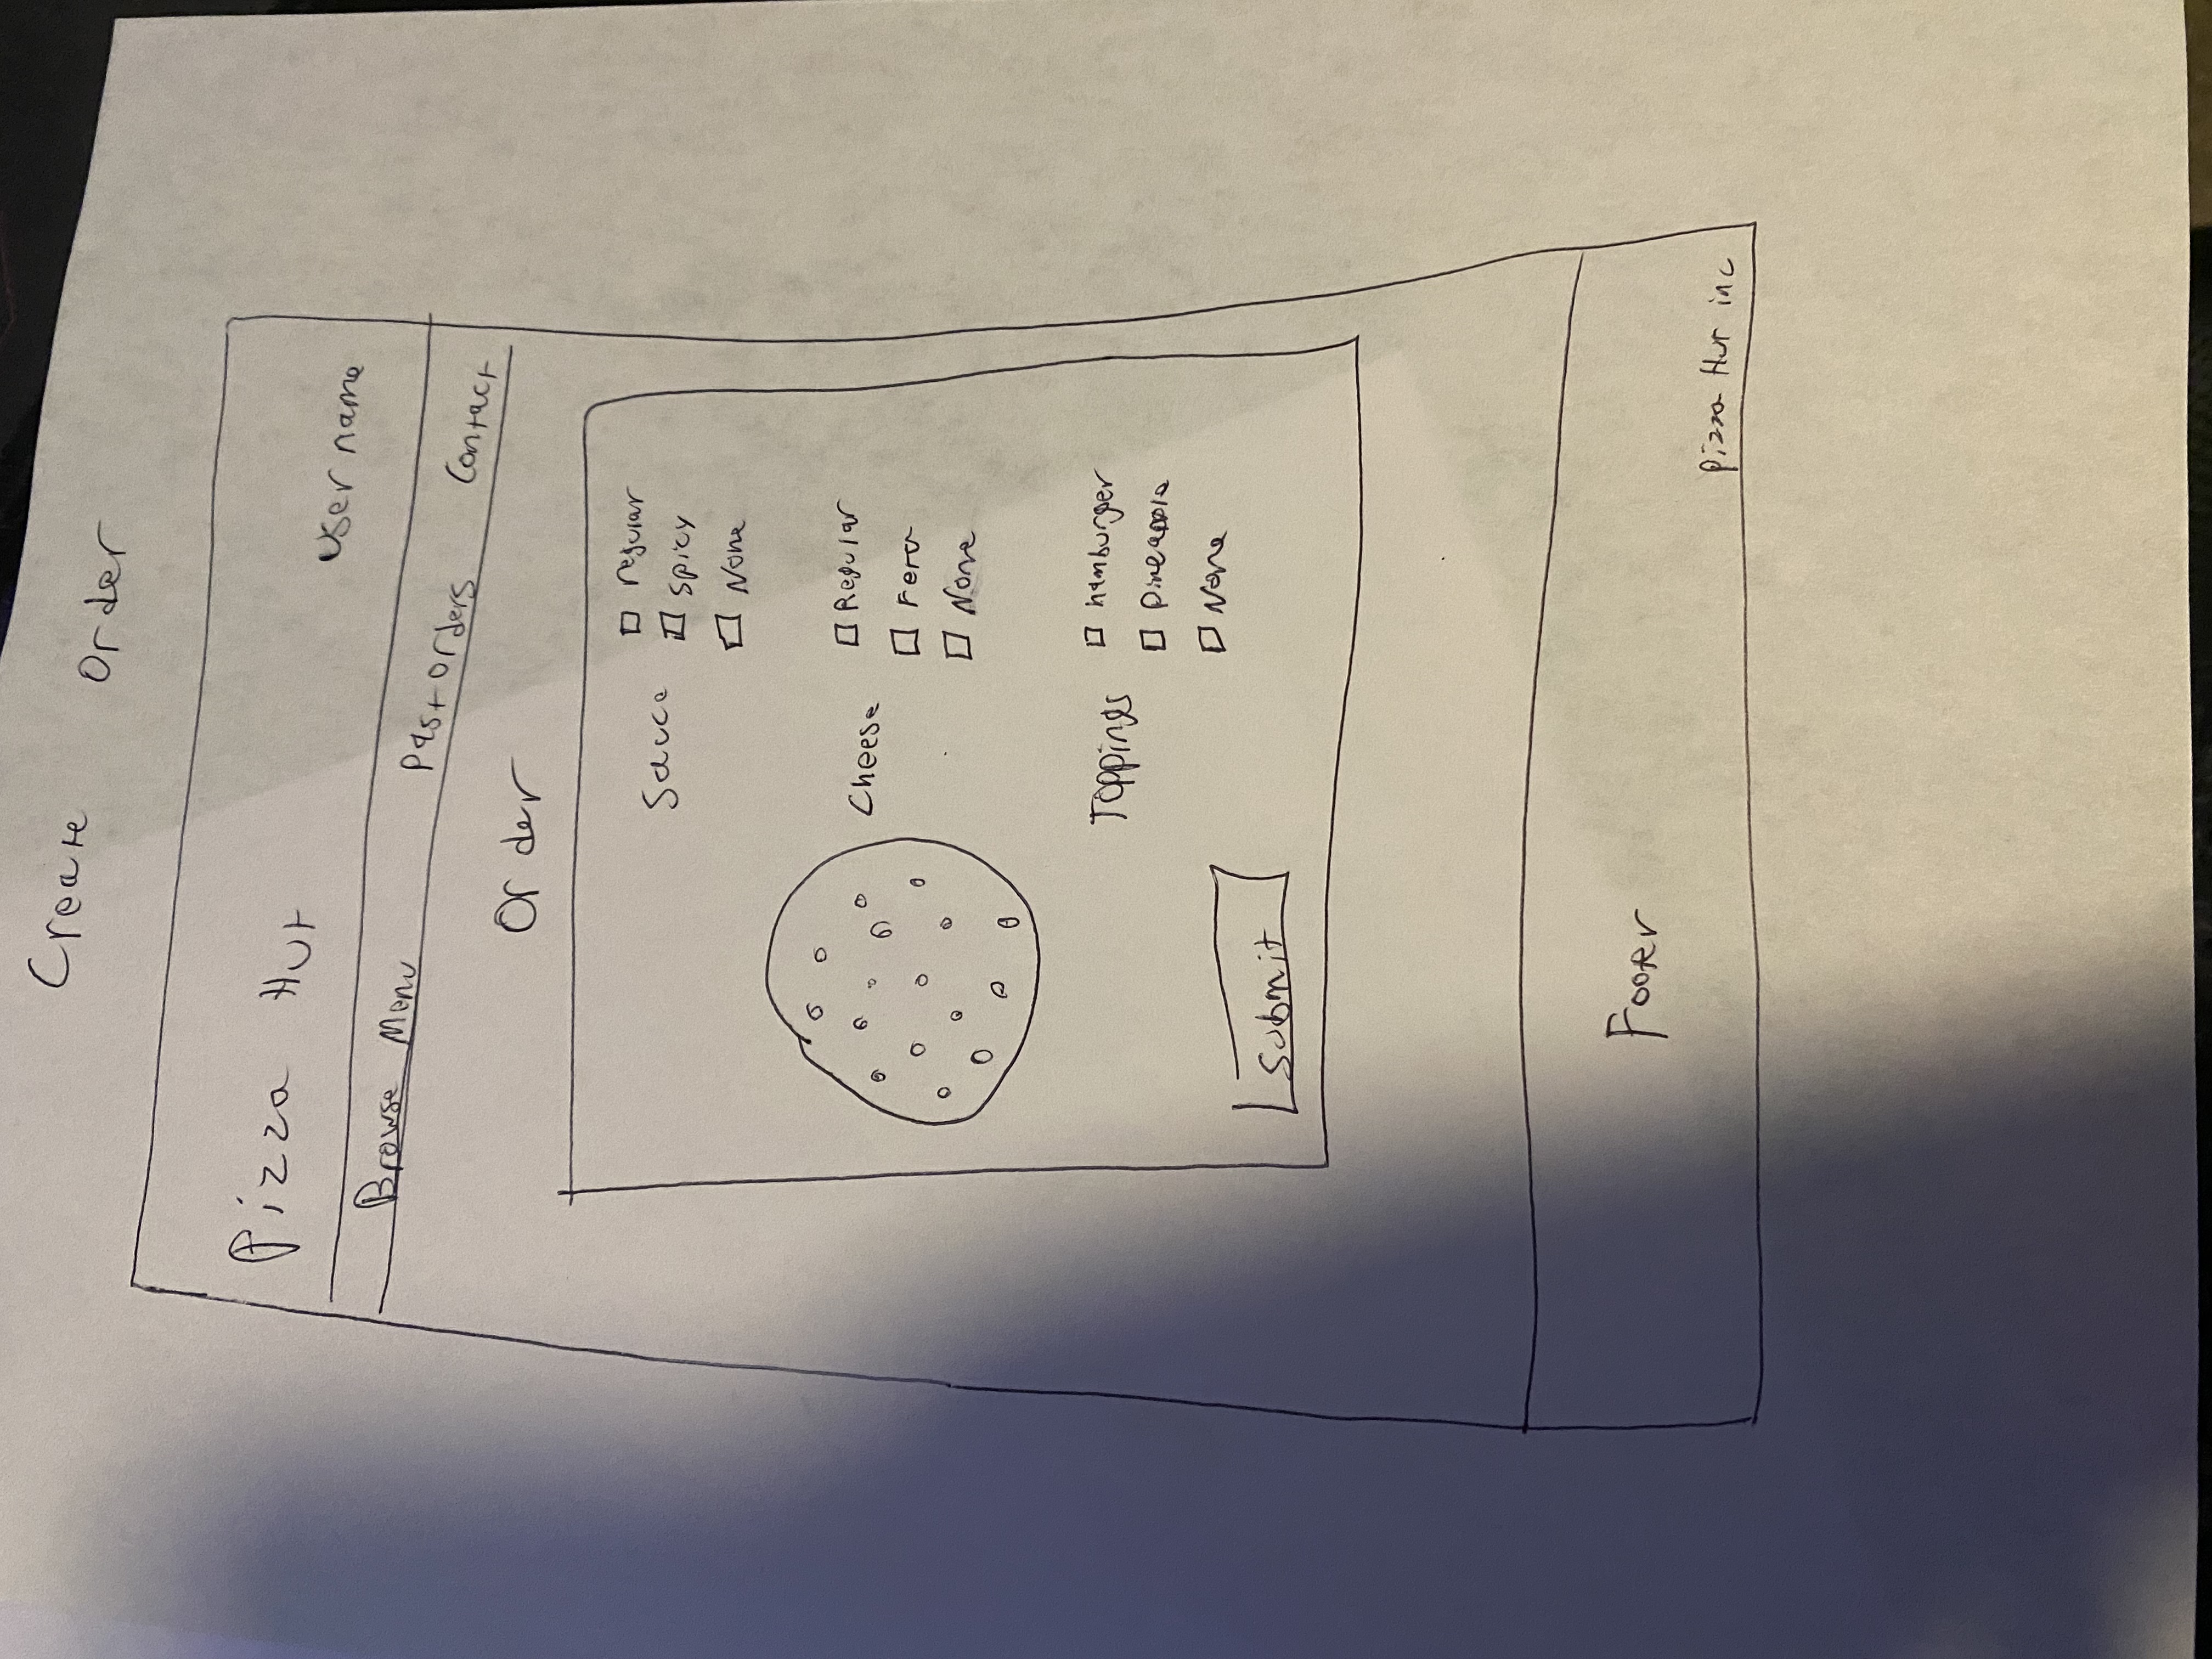 Create Order
Pizza Hut
user name
Browse Menu Past orders Contact
Order
Sauce
regular
Spicy
None
Cheese
Regular
Feta
None
Toppings
hamburger
Pineapple
None
Submit
Footer
Pizza Hut inc